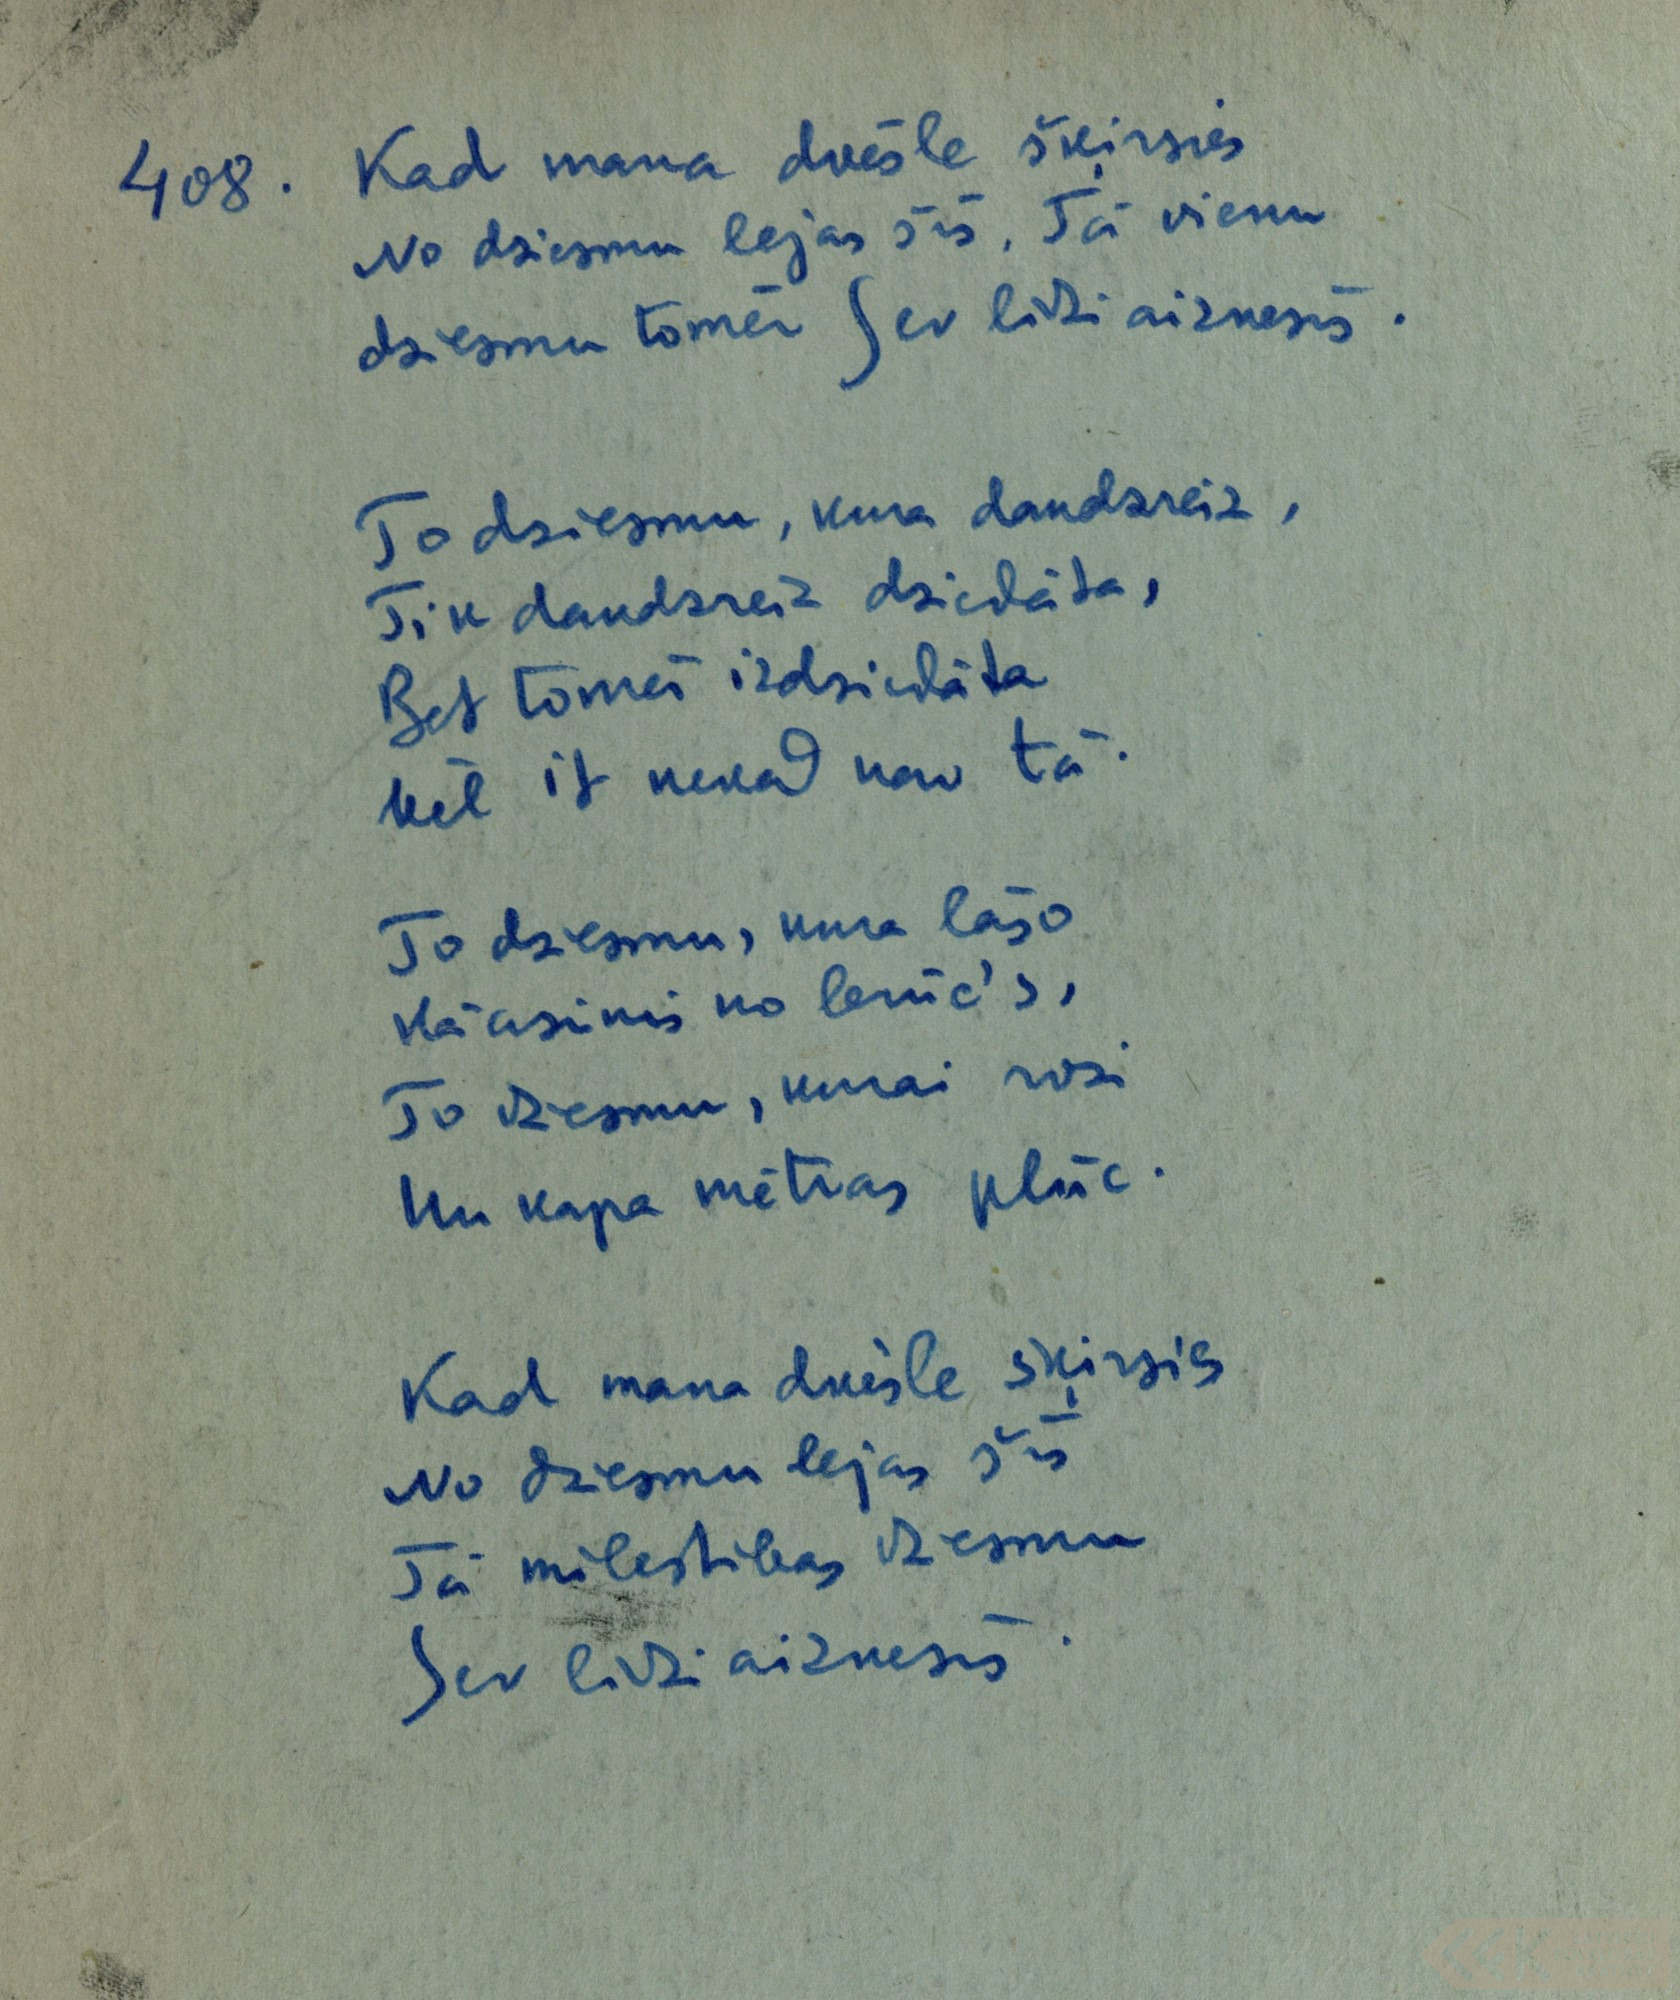 408. Kad mana dvēsle šķirsies
No dziesmu lejas šīs, Tā vienu
dziesmu tomēr Sev līdzi aiznesīs.
To dziesmu, kura daudzreiz,
Tik daudzreiz dziedāta,
Bet tomēr izdziedāta
Vēl it nekad nav tā.
To dziesmu, kura lāso
Kā asinis no
To dziesmu, kurai rozi
Un kapa mētras plūc.
Kad mana dvēsle šķirsies
No dziesmu lejas šīs
Tā mīlestības dziesmu
Sev līdzi aiznesīs.